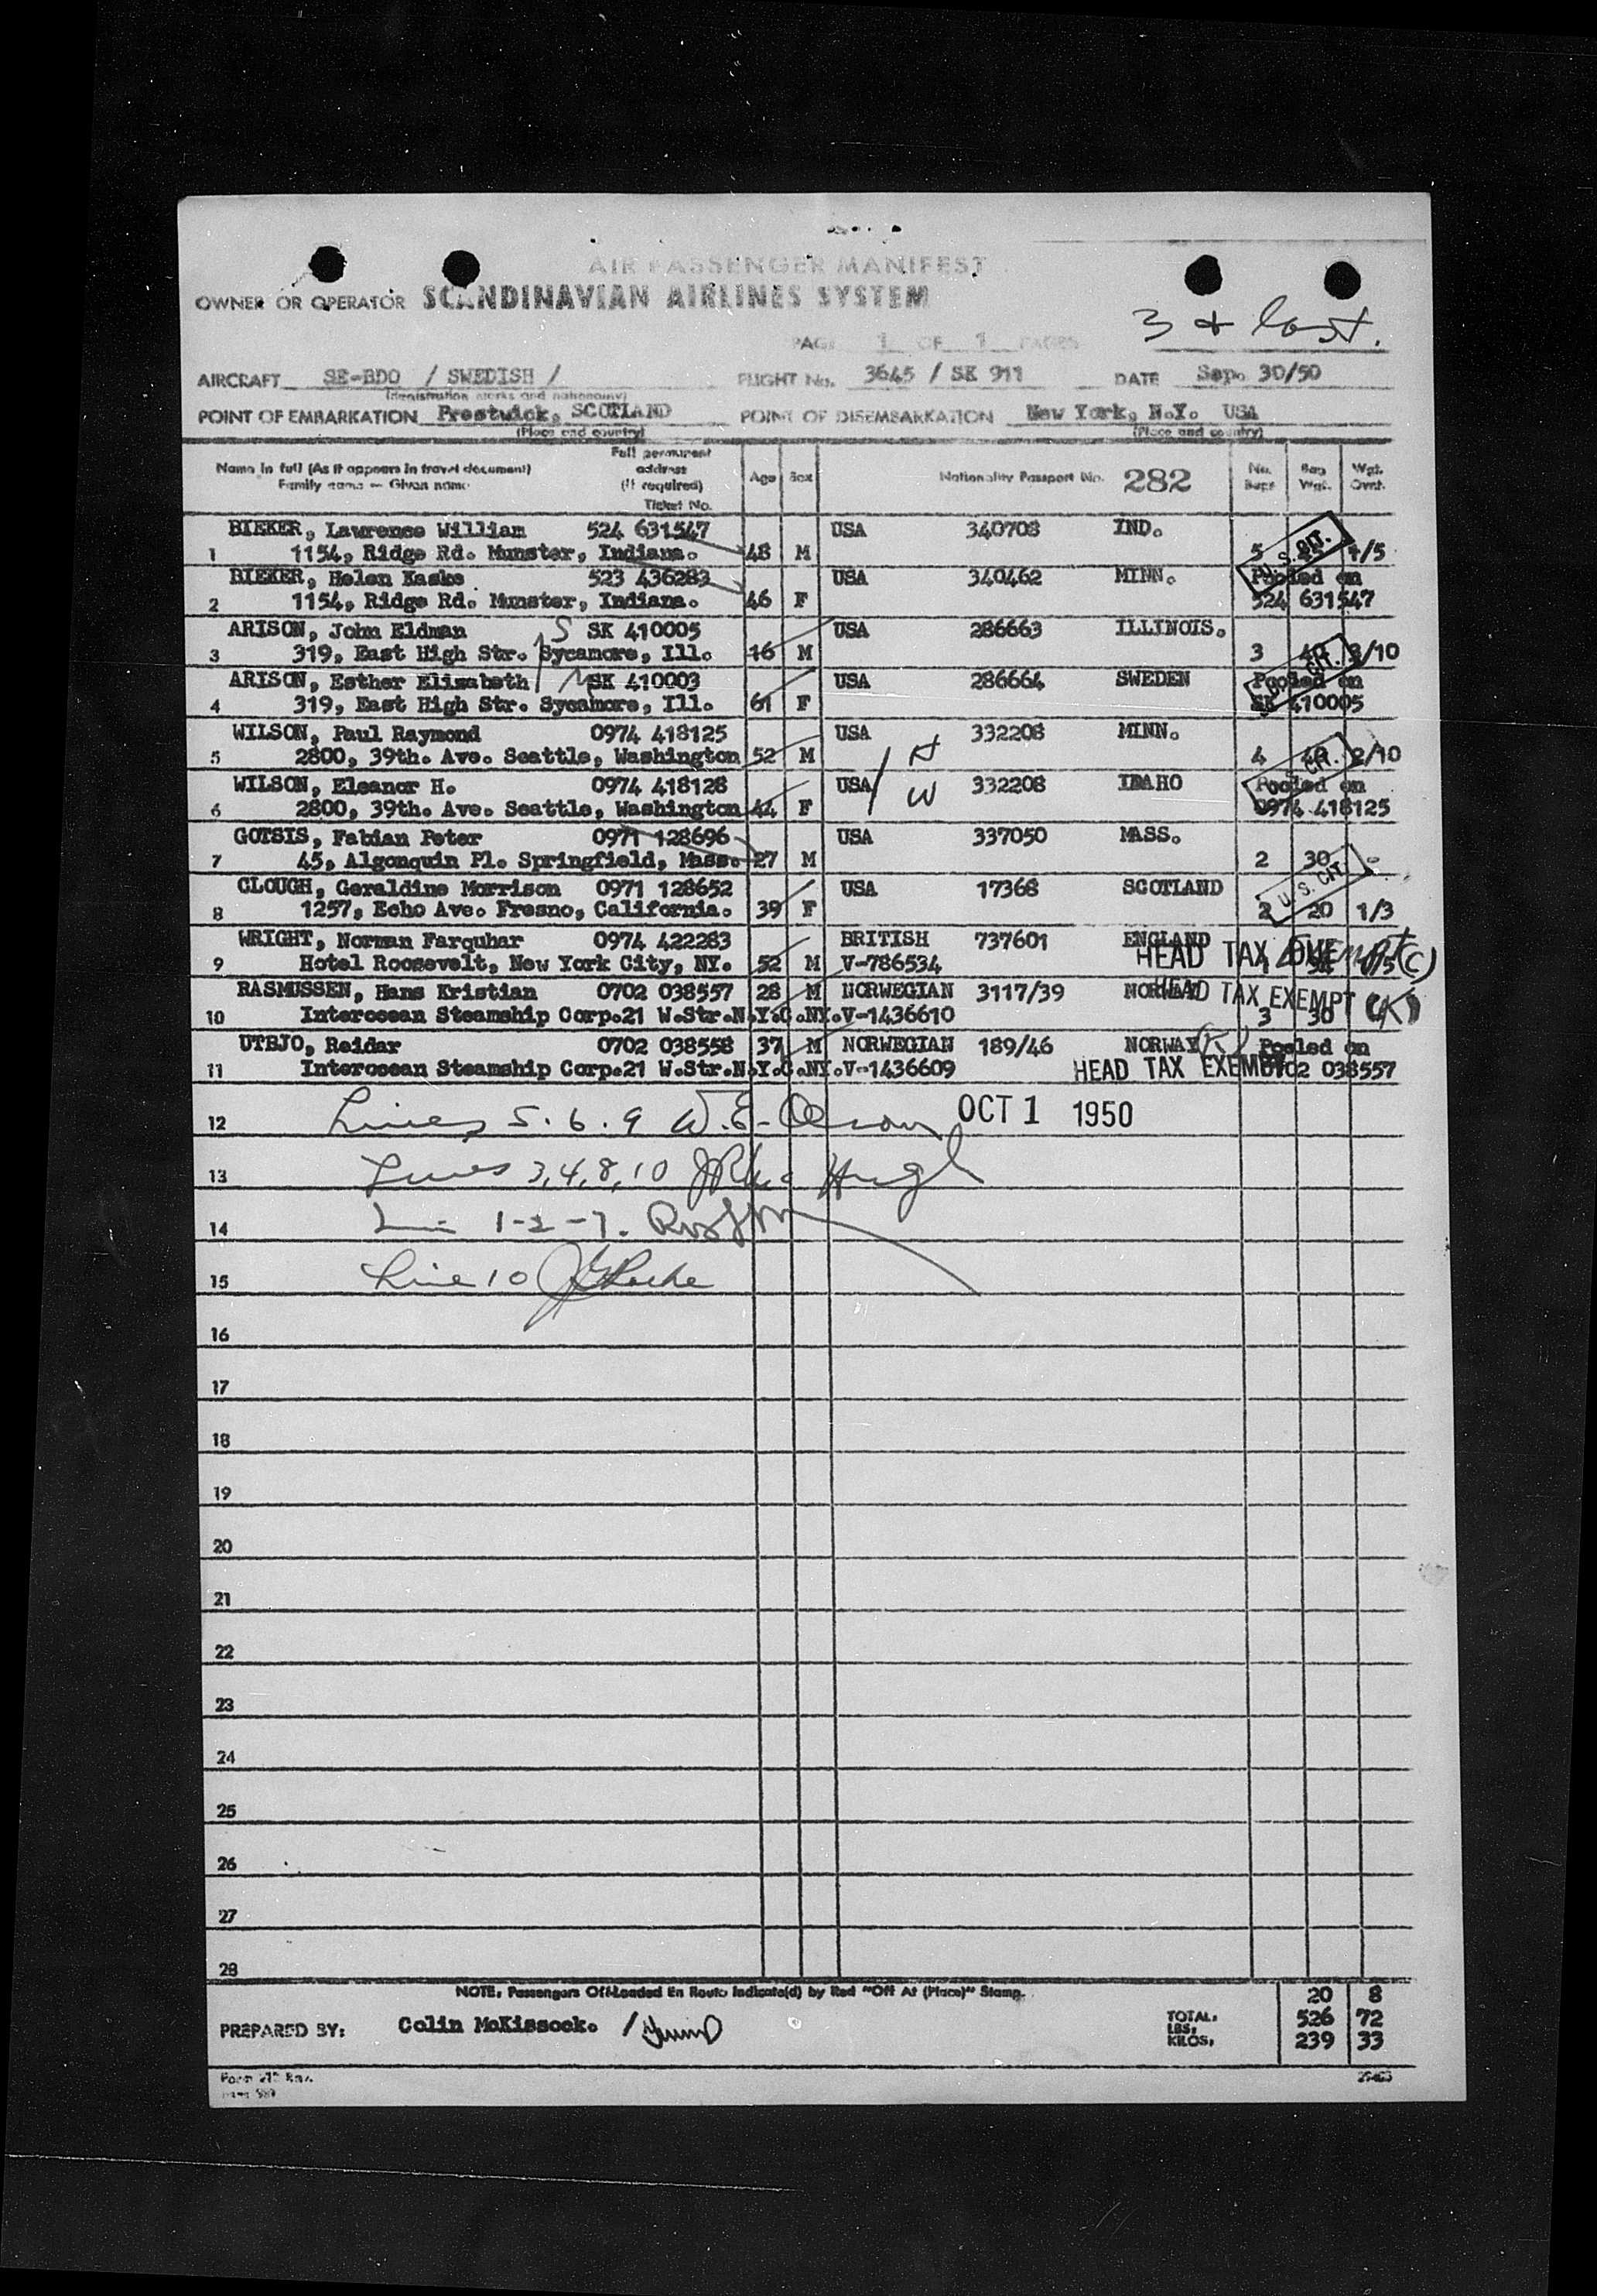 AIR PASSENGER MANIFEST
OWNER OR OPERATOR SCANDINAVIAN AIRLINES SYSTEM
3 & last.
PAGE 1 OF 1 PAGES
AIRCRAFT SE-BDO / SWEDISH / FLIGHT No. 3645 / SK 911 DATE Sep. 30/50
(Registration marks and nationality)
POINT OF EMBARKATION Prestwick, SCOTLAND POINT OF DISEMBARKATION New York, N.Y. USA
(Place and country) (Place and country)
Name in full (As it appears in travel document) Family name — Given name Full permanent address (If required) Ticket No. Age Sex Nationality Passport No. 282 No. Bags Bag Wgt. Wgt. Ovrt.
BIEKER, Lawrence William 524 631547 USA 340708 IND.
1 1154, Ridge Rd. Munster, Indiana. 48 M 5 U.S. CIT. 1/5
BIEKER, Helen Kaske 523 436283 USA 340462 MINN. Pooled on
2 1154, Ridge Rd. Munster, Indiana. 46 F 524 631547
ARISON, John Eldman S SK 410005 USA 286663 ILLINOIS.
3 319, East High Str. Sycamore, Ill. 16 M 3 40 /10
ARISON, Esther Elizabeth M SK 410003 USA 286664 SWEDEN Pooled on
4 319, East High Str. Sycamore, Ill. 61 F SK 410005
WILSON, Paul Raymond 0974 418125 USA H 332208 MINN.
5 2800, 39th. Ave. Seattle, Washington 52 M 4 CIT. /10
WILSON, Eleanor H. 0974 418128 USA W 332208 IDAHO Pooled on
6 2800, 39th. Ave. Seattle, Washington 44 F 0974 418125
GOTSIS, Fabian Peter 0971 128696 USA 337050 MASS.
7 45, Algonquin Pl. Springfield, Mass. 27 M 2 30 -
CLOUGH, Geraldine Morrison 0971 128652 USA 17368 SCOTLAND U.S. CIT.
8 1257, Echo Ave. Fresno, California. 39 F 2 20 1/3
WRIGHT, Norman Farquhar 0974 422283 BRITISH 737601 ENGLAND HEAD TAX Exempt (C)
9 Hotel Roosevelt, New York City, NY. 52 M V-786534
RASMUSSEN, Hans Kristian 0702 038557 28 M NORWEGIAN 3117/39 NORWAY HEAD TAX EXEMPT (K)
10 Interocean Steamship Corp.21 W.Str.N.Y.C.NY.V-1436610 3 30
UTBJO, Reidar 0702 038558 37 M NORWEGIAN 189/46 NORWAY (K) Pooled on
11 Interocean Steamship Corp.21 W.Str.N.Y.C.NY.V-1436609 HEAD TAX EXEMPT 0702 038557
12 Lines 5.6.9 W.E. Olson OCT 1 1950
13 Lines 3,4,8,10
14 1-2-7.
15 Line 10
16
17
18
19
20
21
22
23
24
25
26
27
28
NOTE: Passengers Off-Loaded En Route Indicate(d) by Red "Off At (Place)" Stamp. 20 8
PREPARED BY: Colin McKissock. / TOTAL: LBS. 526 72
KILOS. 239 33